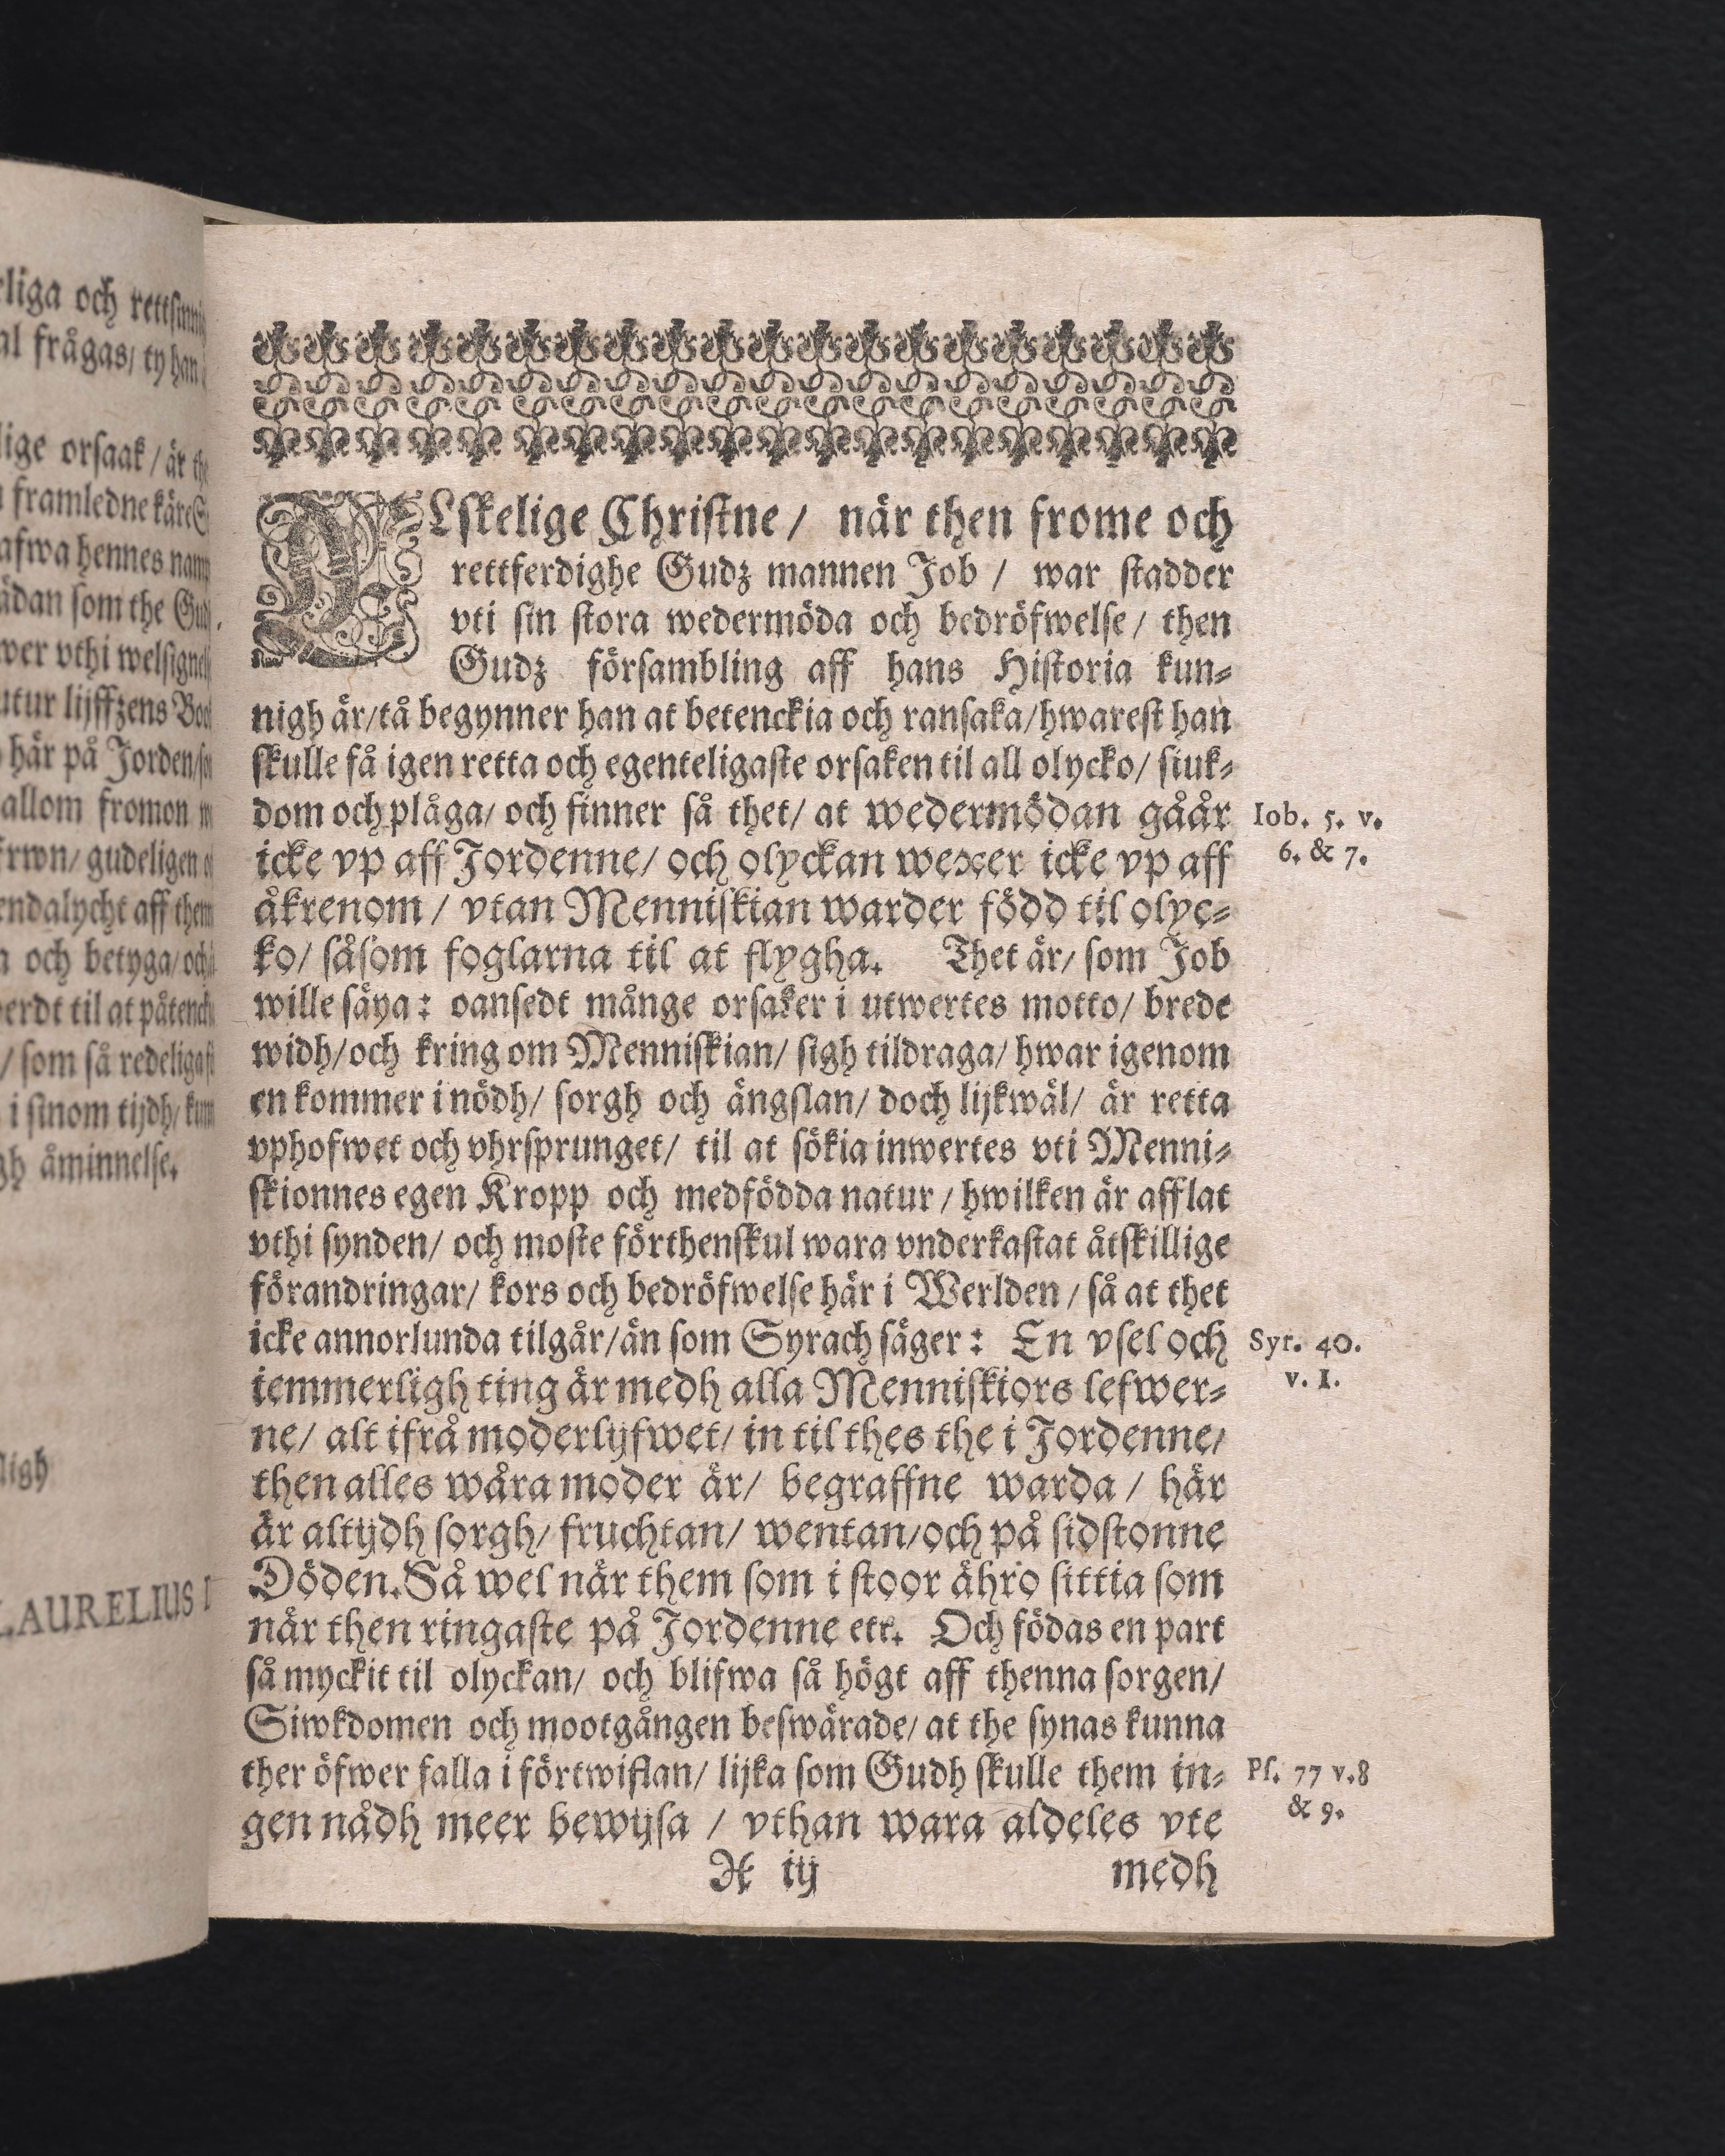 rliga och rettsinni
al frågas/ ty han
lige orsaak / är the
framledne käre
afwa hennes namp
ådan som the Gud
wer vthi welsigne
utur lijffzens Boo
här på Jorden/
allom fromon
rwn/ gudeligen
endalycht aff them
a och betyga/ och
erdt til at påtenck
/ som så redeligast
i sinom tijdh/ kun
gh åminnelse.
ligh
LAURELIUS
ÄLskelige Christne / när then frome och
rettferdighe Gudz mannen Job / war stadder
vti sin stora wedermöda och bedröfwelse / then
Gudz försambling aff hans Historia kun-
nigh är/tå begynner han at betenckia och ransaka/hwarest han
skulle få igen retta och egenteligaste orsaken til all olycko/ siuk-
dom och plåga/ och finner så thet/ at wedermödan gåår
icke vp aff Jordenne/ och olyckan wexer icke vp aff
åkrenom / vtan Menniskian warder född til olyc-
ko/ såsom foglarna til at flygha. Thet är/ som Job
wille säya: oansedt månge orsaker i utwertes motto/ brede
widh/och kring om Menniskian/ sigh tildraga/ hwar igenom
en kommer i nödh/ sorgh och ängslan/ doch lijkwäl/ är retta
vphofwet och vhrsprunget/ til at sökia inwertes vti Menni-
skionnes egen Kropp och medfödda natur / hwilken är afflat
vthi synden/ och moste förthenskul wara vnderkastat åtskillige
förandringar/ kors och bedröfwelse här i Werlden / så at thet
icke annorlunda tilgår/än som Syrach säger: En vsel och
iemmerligh ting är medh alla Menniskiors lefwer-
ne/ alt ifrå moderlijfwet/ in til thes the i Jordenne/
then alles wåra moder är/ begraffne warda / här
är altijdh sorgh/ fruchtan/ wentan/och på sidstonne
Döden. Så wel när them som i stoor ähro sittia som
när then ringaste på Jordenne etc. Och födas en part
så myckit til olyckan/ och blifwa så högt aff thenna sorgen/
Siwkdomen och mootgången beswärade/ at the synas kunna
ther öfwer falla i förtwiflan/ lijka som Gudh skulle them in-
gen nådh meer bewijsa / vthan wara aldeles vte
ij medh
Iob. 5. v.
6. & 7.
Syr. 40.
v. 1.
Ps. 77 v.8
& 9.